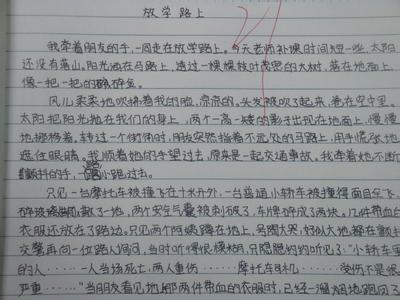 放学路上
我牵着朋友的手,一同走在放学路上。今天老师补课时间短一些,太阳
还没有落山。阳光洒在马路上,透过一棵棵枝叶茂密的大树,落在地面上,
像一把一把的碎金。
风儿柔柔地吹拂着我的脸,凉凉的。头发被吹了起来,卷在空中里。
太阳把阳光抛在我们的身上,两个一高一矮的影子出现在地面上,慢慢
地挪移着。转过一个街角时,朋友突然指着不远处的马路上,用手慌张地
遮住眼睛。我顺着她的手望过去,原来是一起交通事故。我牵着她不断
颤抖的手,小跑过去。
只见一台摩托车被撞飞在十米开外,一台普通小轿车被撞得面目全飞,
散了一地,两个安全气囊被刺破了,车牌碎成了两块。几件带血的
衣服还放在了路边。只见两个阿姨蹲在地上,号啕大哭,好似大地都在颤抖
交警再向一位路人询问,当时听得很模糊,只隐隐约约听见:“小轿车里
的人……一人当场死亡,两人重伤……摩托车司机……受伤不是很
严重……”当朋友看见地那两件带血的衣服时,已经一溜烟地跑回了